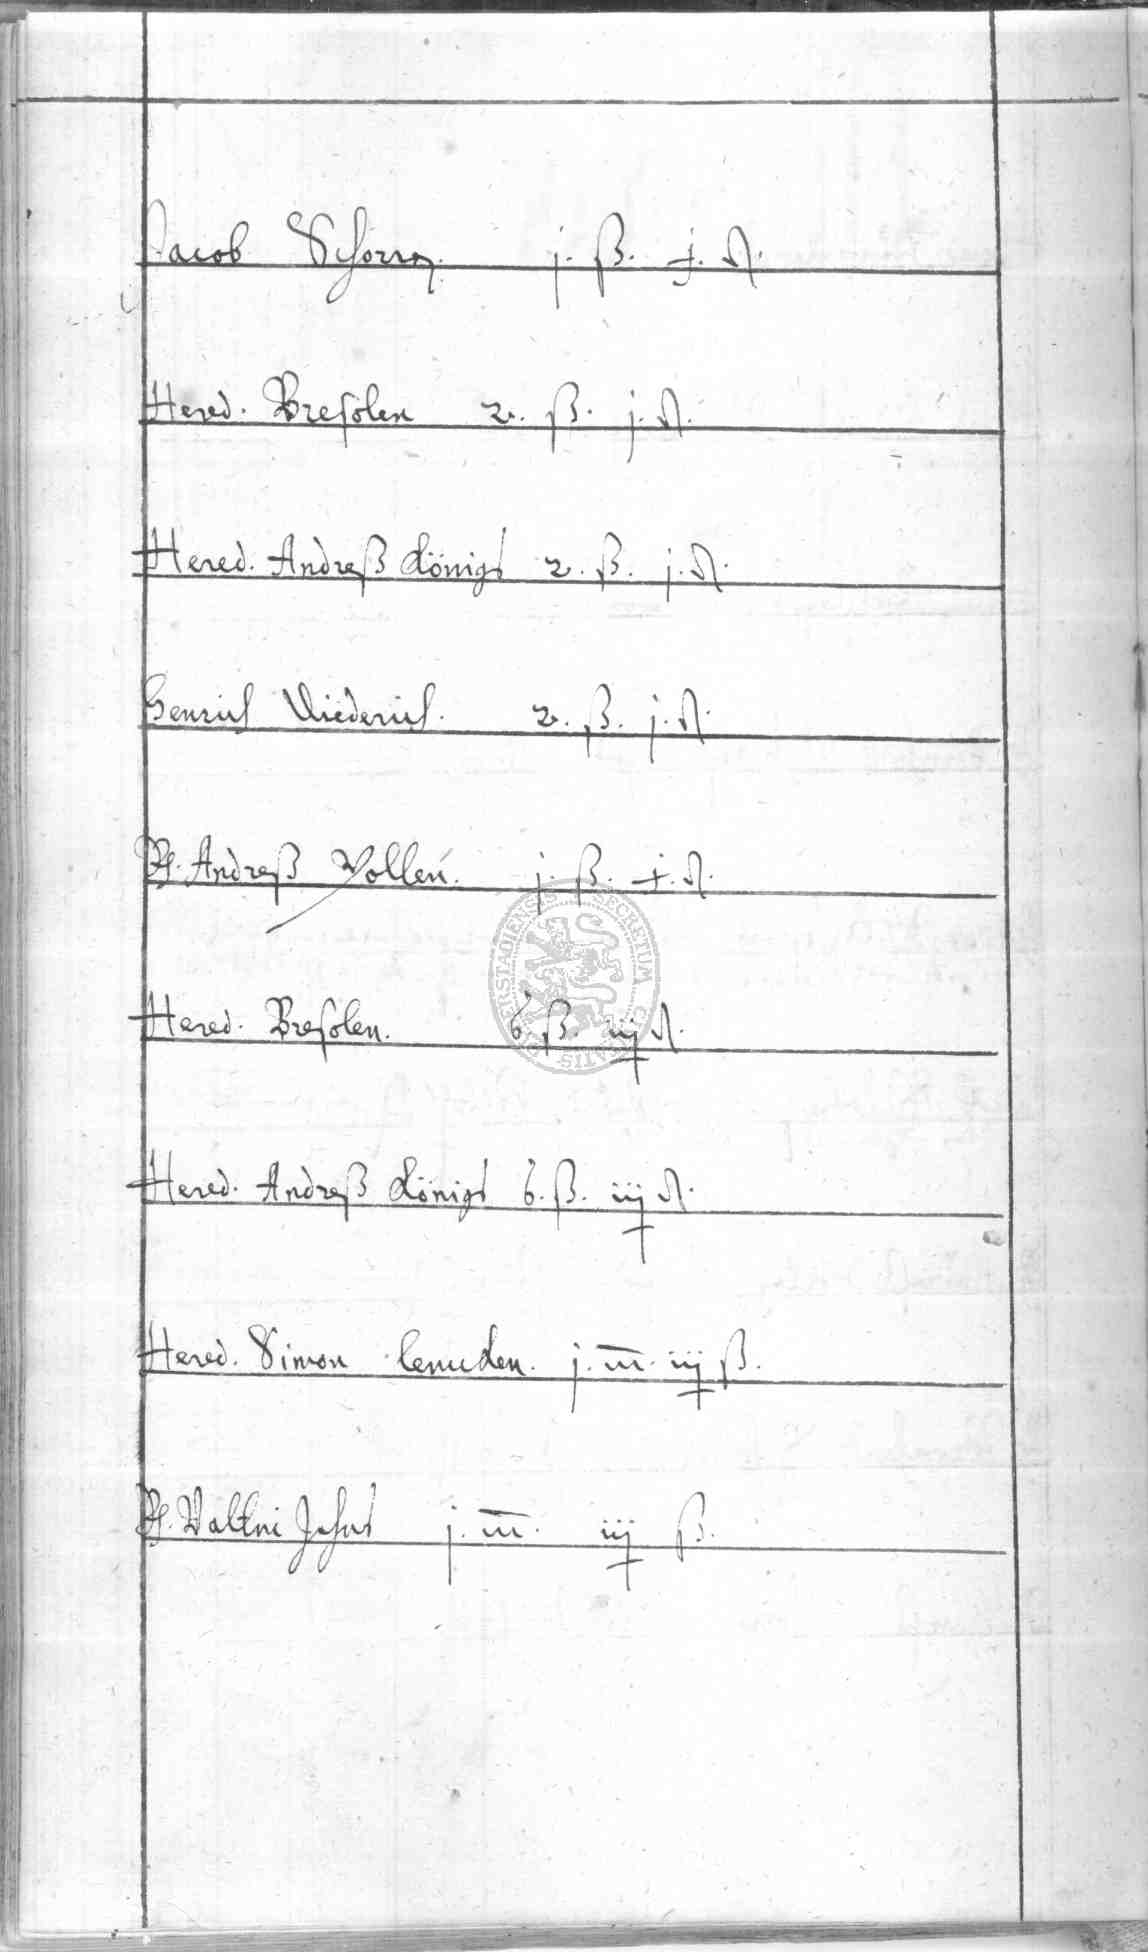 Jacob Schorrn. j. ß. j. ₰.
Hered. Bresolen 2. ß. j. ₰.
Hered. Andreß Königs 2. ß. j. ₰.
Henrich Diederich. 2. ß. j. ₰.
H. Andreß Vollen. j. ß. j. ₰.
Hered. Bresolen. 6. ß. iij ₰.
Hered. Andreß Königs 6. ß. iij ₰.
Hered. Simon j. m. iij ß.
H. Valtni Johns j. m. iij ß.
SECRETUM